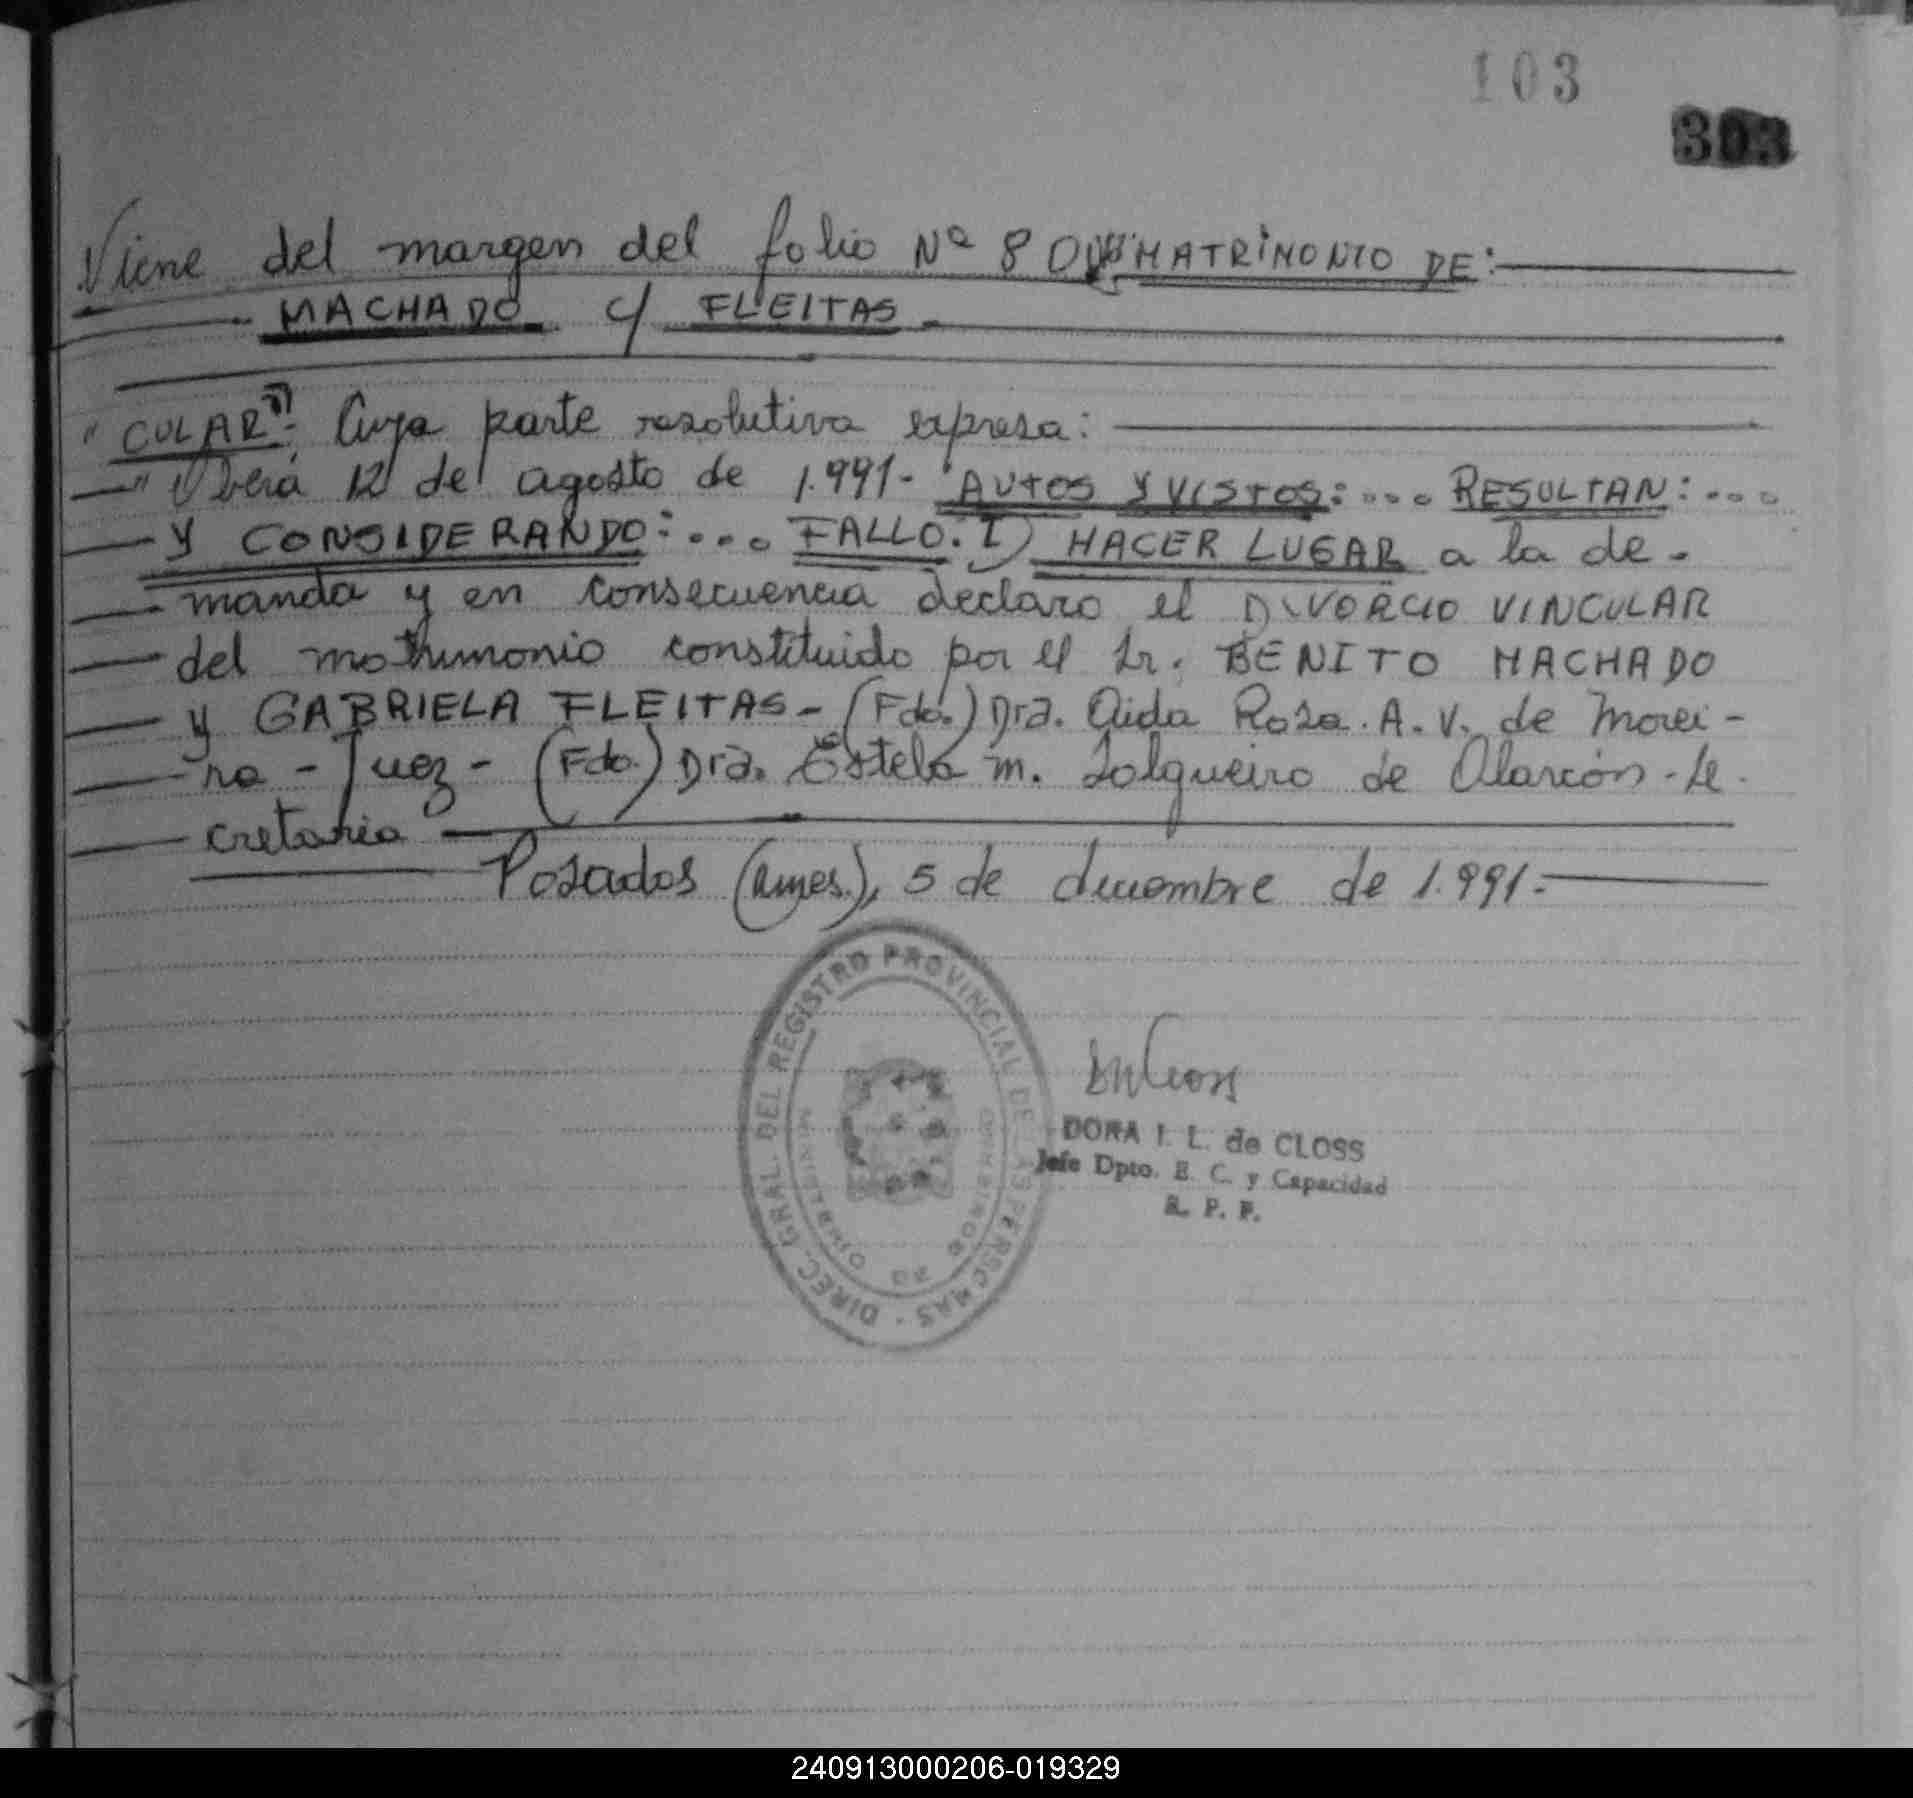 103
303
Viene del margen del folio Nº 80 MATRIMONIO DE:
MACHADO c/ FLEITAS.
"CULAR". Cuya parte resolutiva expresa:
"Oberá 12 de agosto de 1.991- AUTOS Y VISTOS:.... RESULTAN:...
Y CONSIDERANDO:.... FALLO: I) HACER LUGAR a la de-
manda y en consecuencia declaro el DIVORCIO VINCULAR
del matrimonio constituido por el Sr. BENITO MACHADO
y GABRIELA FLEITAS- (Fdo.) Dra. Aida Rosa. A. V. de Morei-
ra - Juez - (Fdo.) Dra. Estela M. Folgueiro de Alarcón - Se-
cretaria
Posadas (Mnes.), 5 de diciembre de 1.991.-
DIREC. GRAL. DEL REGISTRO PROVINCIAL DE LAS PERSONAS
MINISTERIO DE GOBIERNO
DORA I. L. de CLOSS
Jefe Dpto. E. C. y Capacidad
R. P. P.
240913000206-019329